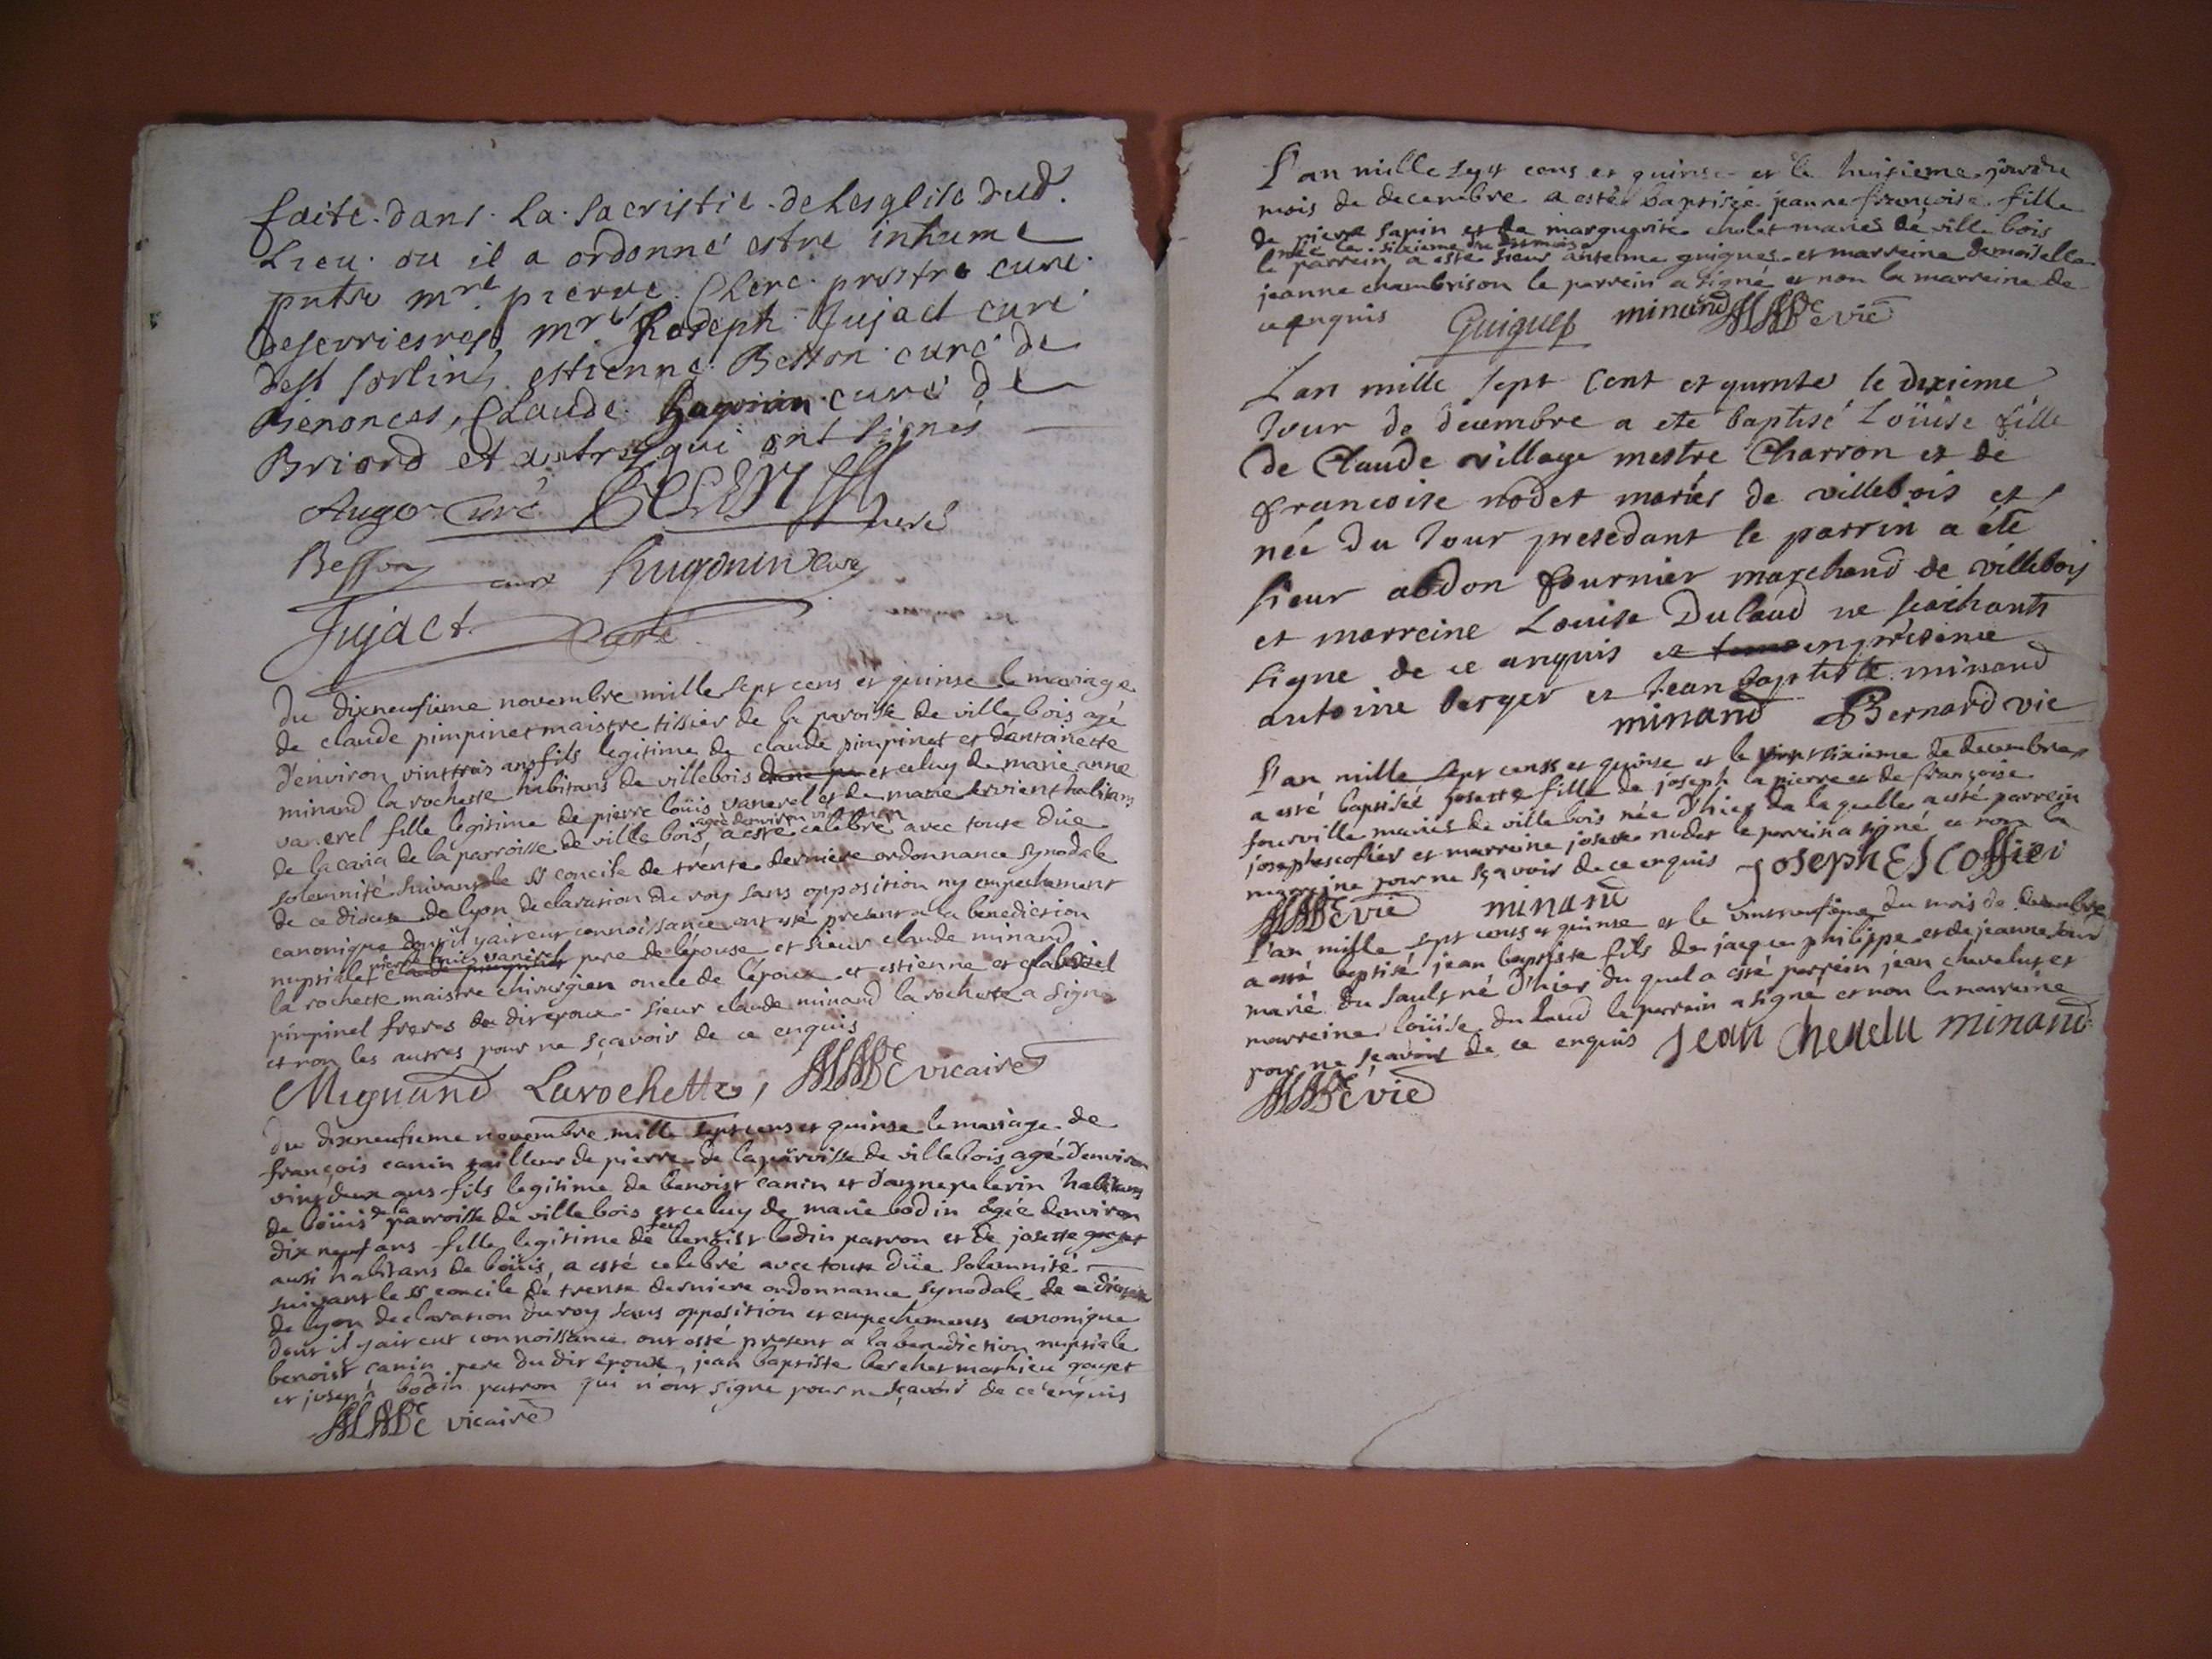 faite dans La Sacristie de Lesglise dud.
Lieu ou il a ordonné estre inhumé
pntre mre pierre Clerc prestre curé
deserrieres, mre Joseph Jujact curé
dest sorlin, estienne Besson curé de
Benonces, Claude hugonin curé de
Briord et autres qui ont signés
Auger Curé CLERC curé
Besson curé hugonin Curé
Jujact Curé
du dixneufieme novembre mille sept cens et quinse le mariage
de claude pimpinet maistre tissier de la paroisse de villebois agé
d'environ vint trois ans fils legitime de claude pimpinet et dantoinette
minand la rochette habitans de villebois et celuy de marie anne
vanerel fille legitime de pierre loüis vanerel et de marie servient habitans
agée denviron vint
de la cava de la parroisse de ville bois a esté celebré avec toute düe
solemnité suivant le st concile de trente derniere ordonnance synodale
de ce diocese de lyon declaration du roy sans opposition ny empechement
canonique dont il y ait eut connoissance ont esté present a la benediction
pierre louis vanerel
nuptiale pere de lépouse et sieur claude minand
la rochette maistre chirurgien oncle de lépoux et estienne et gabriel
pimpinel freres du dit epoux sieur claude minand la rochette a signé
et non les autres pour ne sçavoir de ce enquis
Mignand Larochette, vicaire
du dixneufieme novembre mille sept cens et quinse le mariage de
françois canin tailleur de pierre de la paroisse de villebois agé d'environ
vint deux ans fils legitime de benoist canin et d'anne pelerin habitans
de boüis de la parroisse de ville bois et celuy de marie bodin agée denviron
dix neuf ans fille legitime de feu benoist bodin patron et de josette goyet
aussi habitans de boüis, a esté celebré avec toute düe solemnité
suivant le st concile de trente derniere ordonnance synodale de ce diocese
de lyon declaration du roy sans opposition et empechements canonique
dont il y ait eut connoissance ont esté present a la benediction nuptiale
benoist canin pere du dit epoux, jean baptiste berchet mathieu goyet
et joseph bodin patron qui n'ont signe pour ne sçavoir de ce enquis
vicaire
L'an mille sept cens et quinse et le huitieme jour du
mois de decembre a esté baptisée jeanne françoise fille
de pierre sapin et de marguerite cholet mariés de ville bois
née le sixieme du dit mois
le parrein a esté sieur antelme guigues et marreine demoiselle
jeanne chambrison le parrein a signé et non la marreine de
ce enquis Guigues minand vic
Lan mille sept Cent et quinse le dixieme
Jour de decembre a ete baptisé Loüise fille
de Claude village mestre Charron et de
francoise nodet mariés de villebois et
née du Jour presedant le parrin a été
sieur abdon fournier marchand de villebois
et marreine Louise Dulaud ne scachants
signe de ce anquis et en présence
antoine berger et Jean baptiste minand
minand Bernard vic
L'an mille sept cens et quinse et le vint sixieme de decembre
a esté baptisée josette fille de joseph la pierre et de françoise
fourville mariés de ville bois née d'hier de la quelle a esté parrein
joseph escofier et marreine josette nodet le parrein a signé et non la
marreine pour ne sçavoir de ce enquis joseph ESCoffier
vic minand
L'an mille sept cens et quinse et le vintneufieme du mois de decembre
a esté baptisé jean baptiste fils de jacque philippe et de jeanne
marié du sault né d'hier du quel a esté parrein jean chevelu et
marreine loüise du laud le parrein a signé et non la marreine
pour ne sçavoir de ce enquis jean chevelu minand
vic